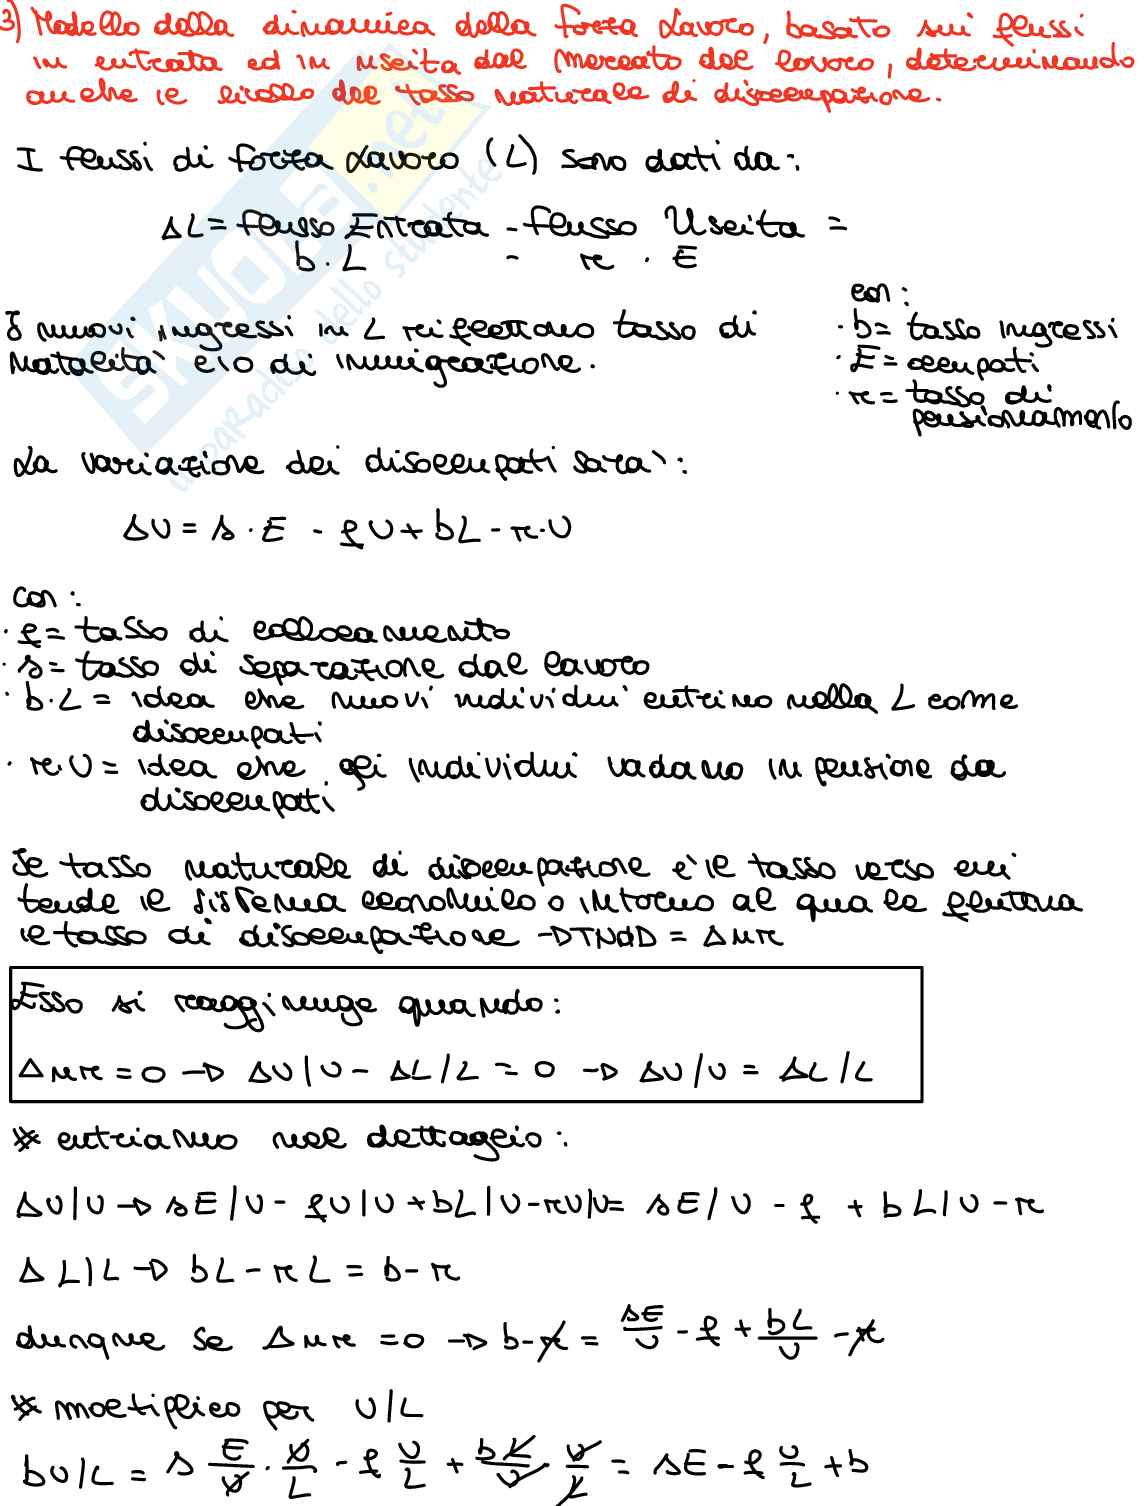 3) Modello della dinamica della forza Lavoro, basato sui flussi
in entrata ed in uscita dal mercato del lavoro, determinando
anche il livello del tasso naturale di disoccupazione.
I flussi di forza Lavoro (L) sono dati da:
ΔL = flusso Entrata - flusso Uscita =
b · L - re · E
con:
I nuovi ingressi in L riflettono tasso di
· b = tasso ingressi
natalità e/o di immigrazione.
· E = occupati
· re = tasso di
pensionamento
La variazione dei disoccupati sarà:
ΔU = s · E - f U + bL - re · U
con:
· f = tasso di collocamento
· s = tasso di separazione dal lavoro
· b · L = idea che nuovi individui entrino nella L come
disoccupati
· re. U = idea che gli individui vadano in pensione da
disoccupati
Il tasso naturale di disoccupazione è il tasso verso cui
tende il sistema economico o intorno al quale fluttua
il tasso di disoccupazione → TNdD = Δur
Esso si raggiunge quando:
Δur = 0 → ΔU/U - ΔL/L = 0 → ΔU/U = ΔL/L
* entriamo nel dettaglio:
ΔU/U → sE/U - fU/U + bL/U - rU/U = sE/U - f + bL/U - r
ΔL/L → bL - rL = b - r
dunque se Δur = 0 → b - r = sE/U - f + bL/U - r
* moltiplico per U/L
bU/L = s E/U · U/L - f U/L + bL/U · U/L = sE - f U/L + b
SKUOLA.net
il paradiso dello studente